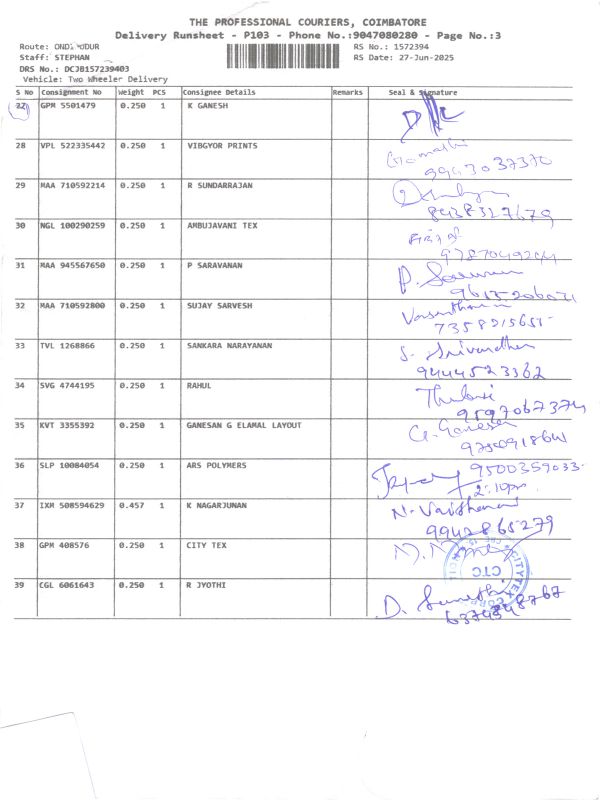 THE PROFESSIONAL COURIERS, COIMBATORE
Delivery Runsheet - P103 - Phone No.:9047080280 - Page No.:3
Route: RS No.: 1572394
Staff: STEPHAN RS Date: 27-Jun-2025
DRS No.: DCJB157239403
Vehicle: Two Wheeler Delivery
S No Consignment No Weight PCS Consignee Details Remarks Seal & Signature
GPM 5501479 0.250 1 K GANESH
28 VPL 522335442 0.250 1 VIBGYOR PRINTS
9963037370
29 MAA 710592214 0.250 1 R SUNDARRAJAN
8438327679
30 NGL 100290259 0.250 1 AMBUJAVANI TEX
31 MAA 945567650 0.250 1 P SARAVANAN
P.
32 MAA 710592800 0.250 1 SUJAY SARVESH
33 TVL 1268866 0.250 1 SANKARA NARAYANAN
9444523362
34 SVG 4744195 0.250 1 RAHUL
9597067374
35 KVT 3355392 0.250 1 GANESAN G ELAMAL LAYOUT
G. Ganesan
36 SLP 10084054 0.250 1 ARS POLYMERS
9500359033
2:10pm
37 IXM 508594629 0.457 1 K NAGARJUNAN
9942865279
38 GPM 408576 0.250 1 CITY TEX
CITYTEX
CTC
39 CGL 6061643 0.250 1 R JYOTHI
D.